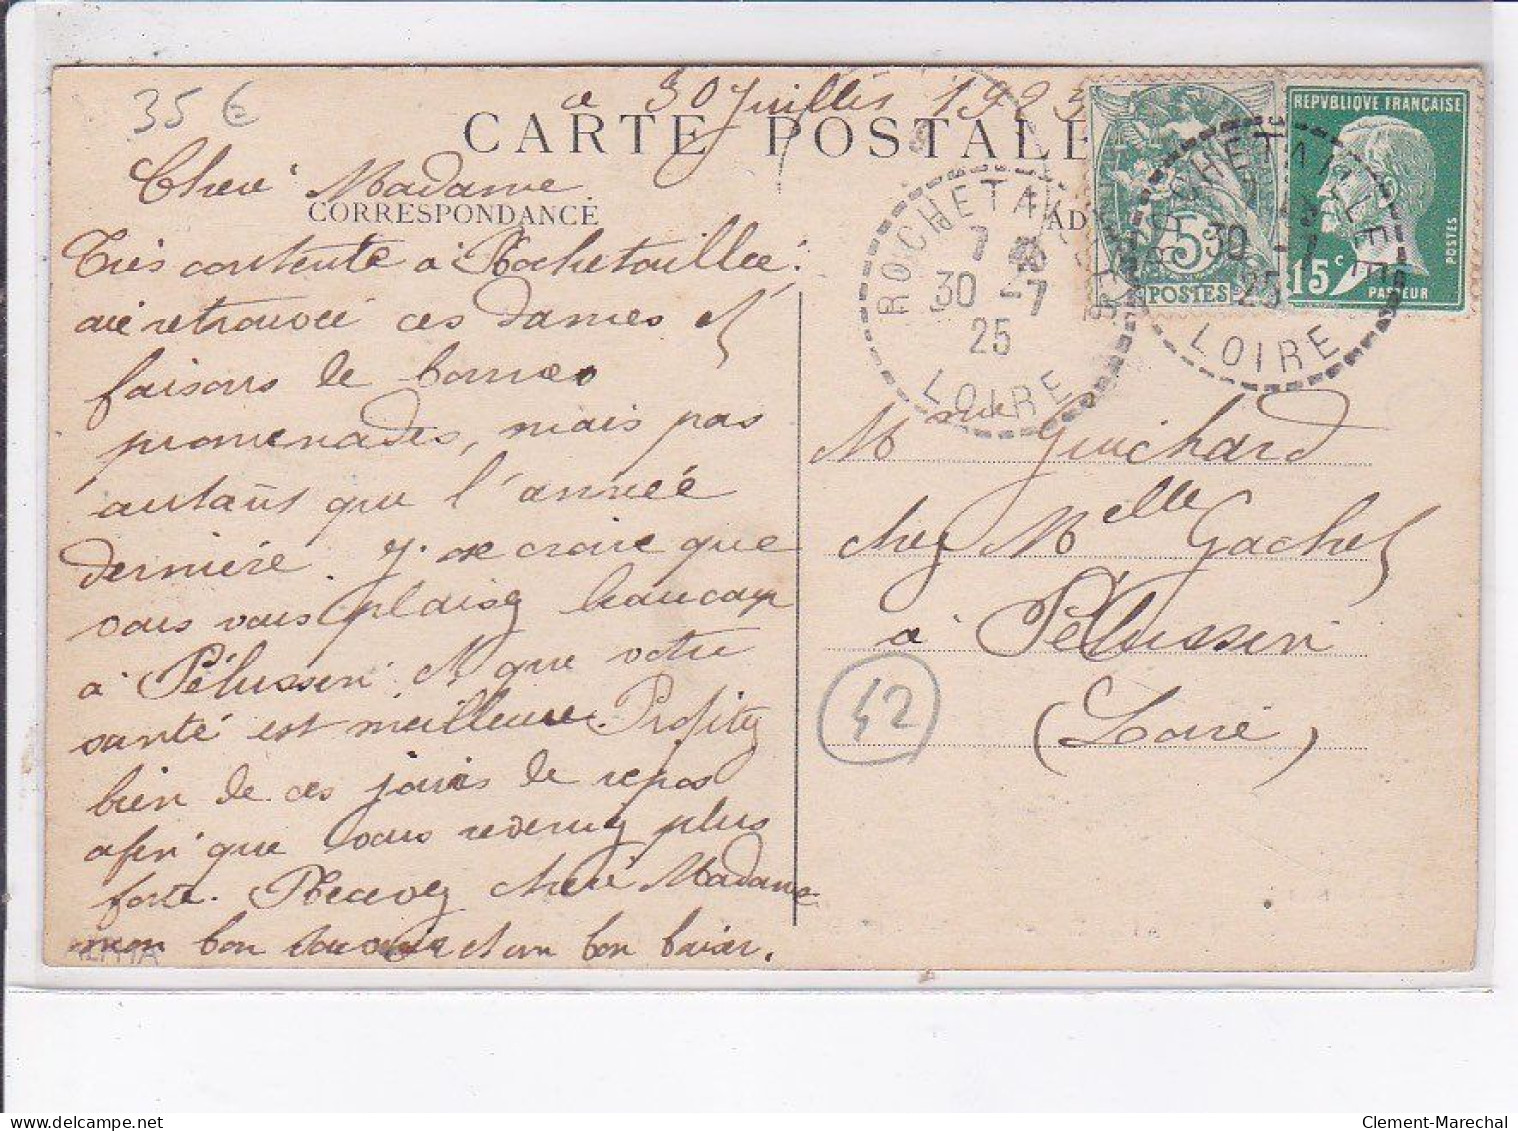 35 €
a 30 Juillet 192
CARTE POSTALE
Chere Madame
CORRESPONDANCE
AD
Très contente à Rochetaillée.
ai retrouvée ces dames et
faisons de bonnes
promenades, mais pas
autant que l'année
dernière. J. ose croire que
vous vous plaisez beaucoup
à Pélussin et que votre
santé est meilleure. Profitez
bien de ces jours de repos
afin que vous reveniez plus
forte. Recevez chère Madame
mon bon souvenir et un bon baiser.
ROCHETAILLEE
7
30 -7
25
LOIRE
5
POSTES
REPVBLIQUE FRANÇAISE
15c
PASTEUR
POSTES
ROCHETAILLEE
30 -7
25
LOIRE
Mme Guichard
chez Melle Gachet
à Pélussin
(Loire)
42
Clement-Marechal